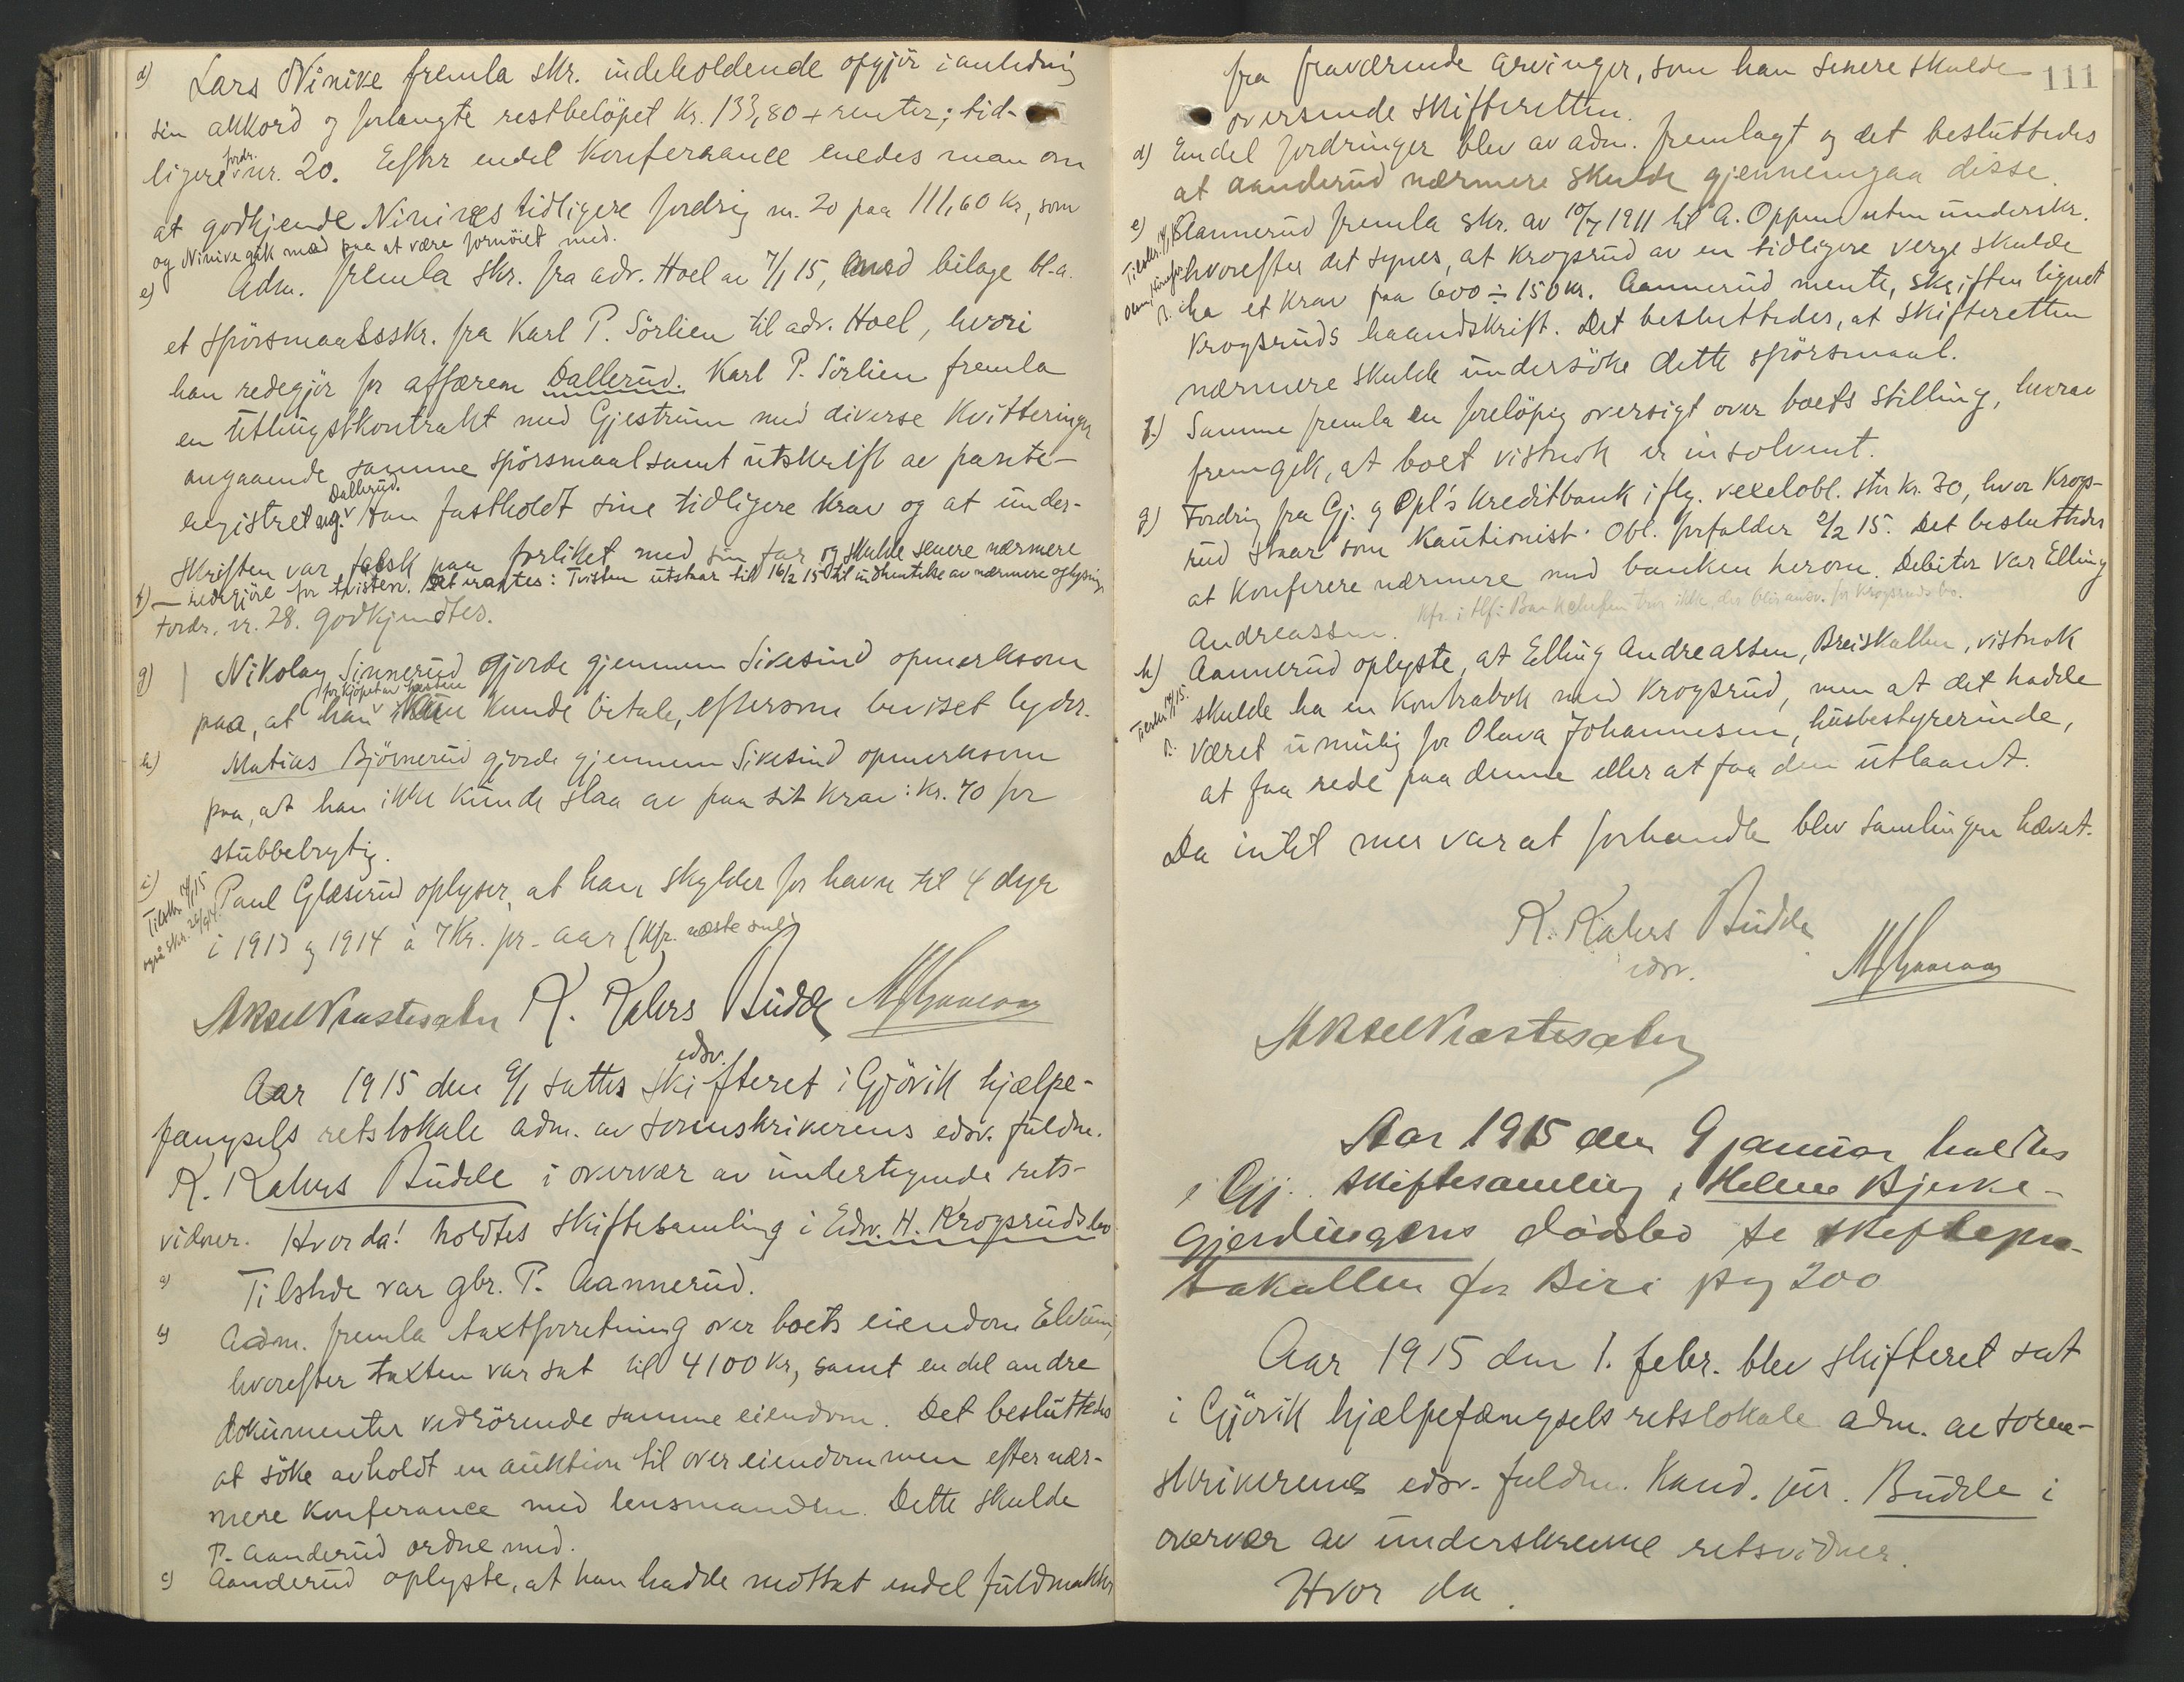 d) Lars Ninive fremla skr. indeholdende opgjör i anledning
sin akkord og forlangte restbelöpet kr. 133,80 + renter; tid-
ligere fordr. nr. 20. Efter endel konferance enedes man om
at godkjende Ninives tidligere fordrig nr. 20 paa 111,60 kr, som
og Ninive gik med paa at være fornöiet med.
e) Adm. fremla skr. fra adv. Hoel av 7/1 15, med bilage bl.a.
et spörsmaalsskr. fra Karl P. Sörlien til adv. Hoel, hvori
han redegjör for affæren Dallerud. Karl P. Sörlien fremla
en utlingskontrakt med Gjestrum med diverse kvitteringer
angaaende samme spörsmaal samt utskrift av pante-
registret ang. Dallerud. Han fastholdt sine tidligere krav og at under-
skriften var falsk paa forliket med sin far og skulde senere nærmere
redegjöre for tvisten. Det eragtes: Tvisten utstaar till 16/2 15 til indhentelse av nærmere oplysning
f) Fordr. nr. 28. godkjendtes.
g) Nikolay Sinnerud gjorde gjennem Sivesind opmerksom
paa, at han for kjöpet av hesten ikke kunde betale, eftersom beviset lyder.
h) Matias Björnerud gjorde gjennem Sivesind opmerksom
paa, at han ikke kunde slaa av paa sit krav: kr. 70 for
stubbebrytig.
i) Paul Glæserud oplyser, at han skylder for havn til 4 dyr
Tilskr. 14/1 15
i 1913 og 1914 à 7 kr. pr. aar (kfr. næste
Aksel Krastesæter K. Kahrs Budde
edsv.
Aar 1915 den 9/1 sattes skifteret i Gjövik hjælpe-
fængsels retslokale adm. av sorenskriverens edsv. fuldm.
K. Kahrs Budde i overvær av undertegnede rets-
vidner. Hvor da! holdtes skiftesamling i Edv. H. Krogsruds bo
a) Tilstede var gbr. P. Aannerud.
b) Adm. fremla taxtforretning over boets eiendom Elvum,
hvorefter taxten var sat til 4100 kr, samt en del andre
dokumenter vedrörende samme eiendom. Det besluttedes
at söke avholdt en auktion til over eiendommen efter nær-
mere konferance med lensmanden. Dette skulde
P. Aanderud ordne med.
c) Aanderud oplyste, at han hadde mottat endel fuldmakter
111
fra fraværende arvinger, som han senere skulde
oversende skifteretten.
d) Endel fordringer blev av adm. fremlagt og det besluttedes
at Aanderud nærmere skulde gjennemgaa disse.
e) Aannerud fremla skr. av 10/7 1911 til A. Oppen uten underskr.
hvorefter det synes, at Krogsrud av en tidligere verge skulde
ha et krav paa 600 ÷ 150 kr. Aannerud mente, skriften lignet
Krogsruds haandskrift. Det besluttedes, at skifteretten
nærmere skulde undersöke dette spörsmaal.
f.) Samme fremla en forelöpig oversigt over boets stilling, hvorav
fremgik, at boet vistnok er insolvent.
g) Fordrig fra Gj. og Opl's Kreditbank iflg. vexelobl. stor kr. 30, hvor Krogs-
rud staar som kautionist. Obl. forfalder 2/2 15. Det besluttedes
at konferere nærmere med banken herom. Debitor var Elling
Andreassen. Kfr. i tlf.: Bankchefen tror ikke, der blir ansv. for Krogsruds bo.
h) Aannerud oplyste, at Elling Andreassen, Breiskallen, vistnok
Tilskr. 14/1 15.
skulde ha en kontrabok med Krogsrud, men at det hadde
været umulig for Olava Johannesen, husbestyrerinde,
at faa rede paa denne eller at faa den utlaant.
Da intet mer var at forhandle blev samlingen hævet.
K. Kahrs Budde
edsv.
Aksel Krastesæter
Aar 1915 den 9 januar holdtes
i Gj. skiftesamling i Helene Bjerke-
gjerdingens dödsbo se skiftepro-
tokollen for Biri pag 200
Aar 1915 den 1. febr. blev skifteret sat
i Gjövik hjælpefængsels retslokale adm. av soren-
skriverens edsv. fuldm. Kand. jur. Budde i
overvær av underskrevne retsvidner.
Hvor da.